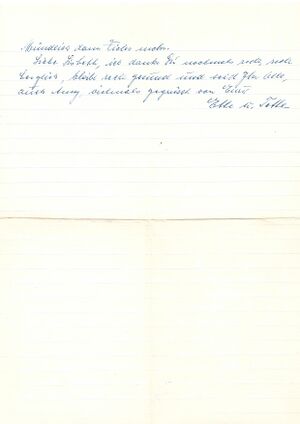 Mündlich dann vieles mehr.
Liebe Lisbeth, ich danke Dir nochmals recht, recht
herzlich, bleibt recht gesund und seid Ihr alle,
auch vielmals gegrüsst von Eurer